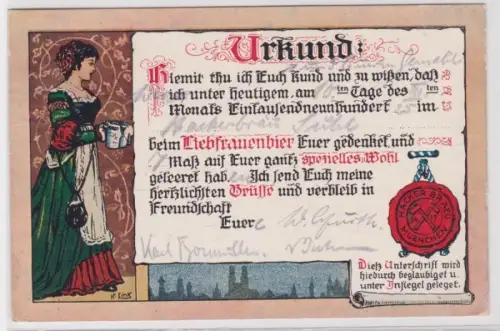 Urkund:
Hiemit thu ich Euch kund und zu wißen, daß
ich unter heutigem, am 10ten Tage des ten
Monats Eintausendneunhundert 25 im
Hackerbräu
beim Liebfrauenbier Euer gedenket und
7 Maß auf Euer gantz spezielles Wohl
geleeret hab. Ich send Euch meine
hertzlichsten Grüsse und verbleib in
Freundschaft
Euer
Karl
HACKER BRÄU
MUENCHEN
Dieß Unterschrift wird
hiedurch beglaubiget u.
unter Insiegel geleget.